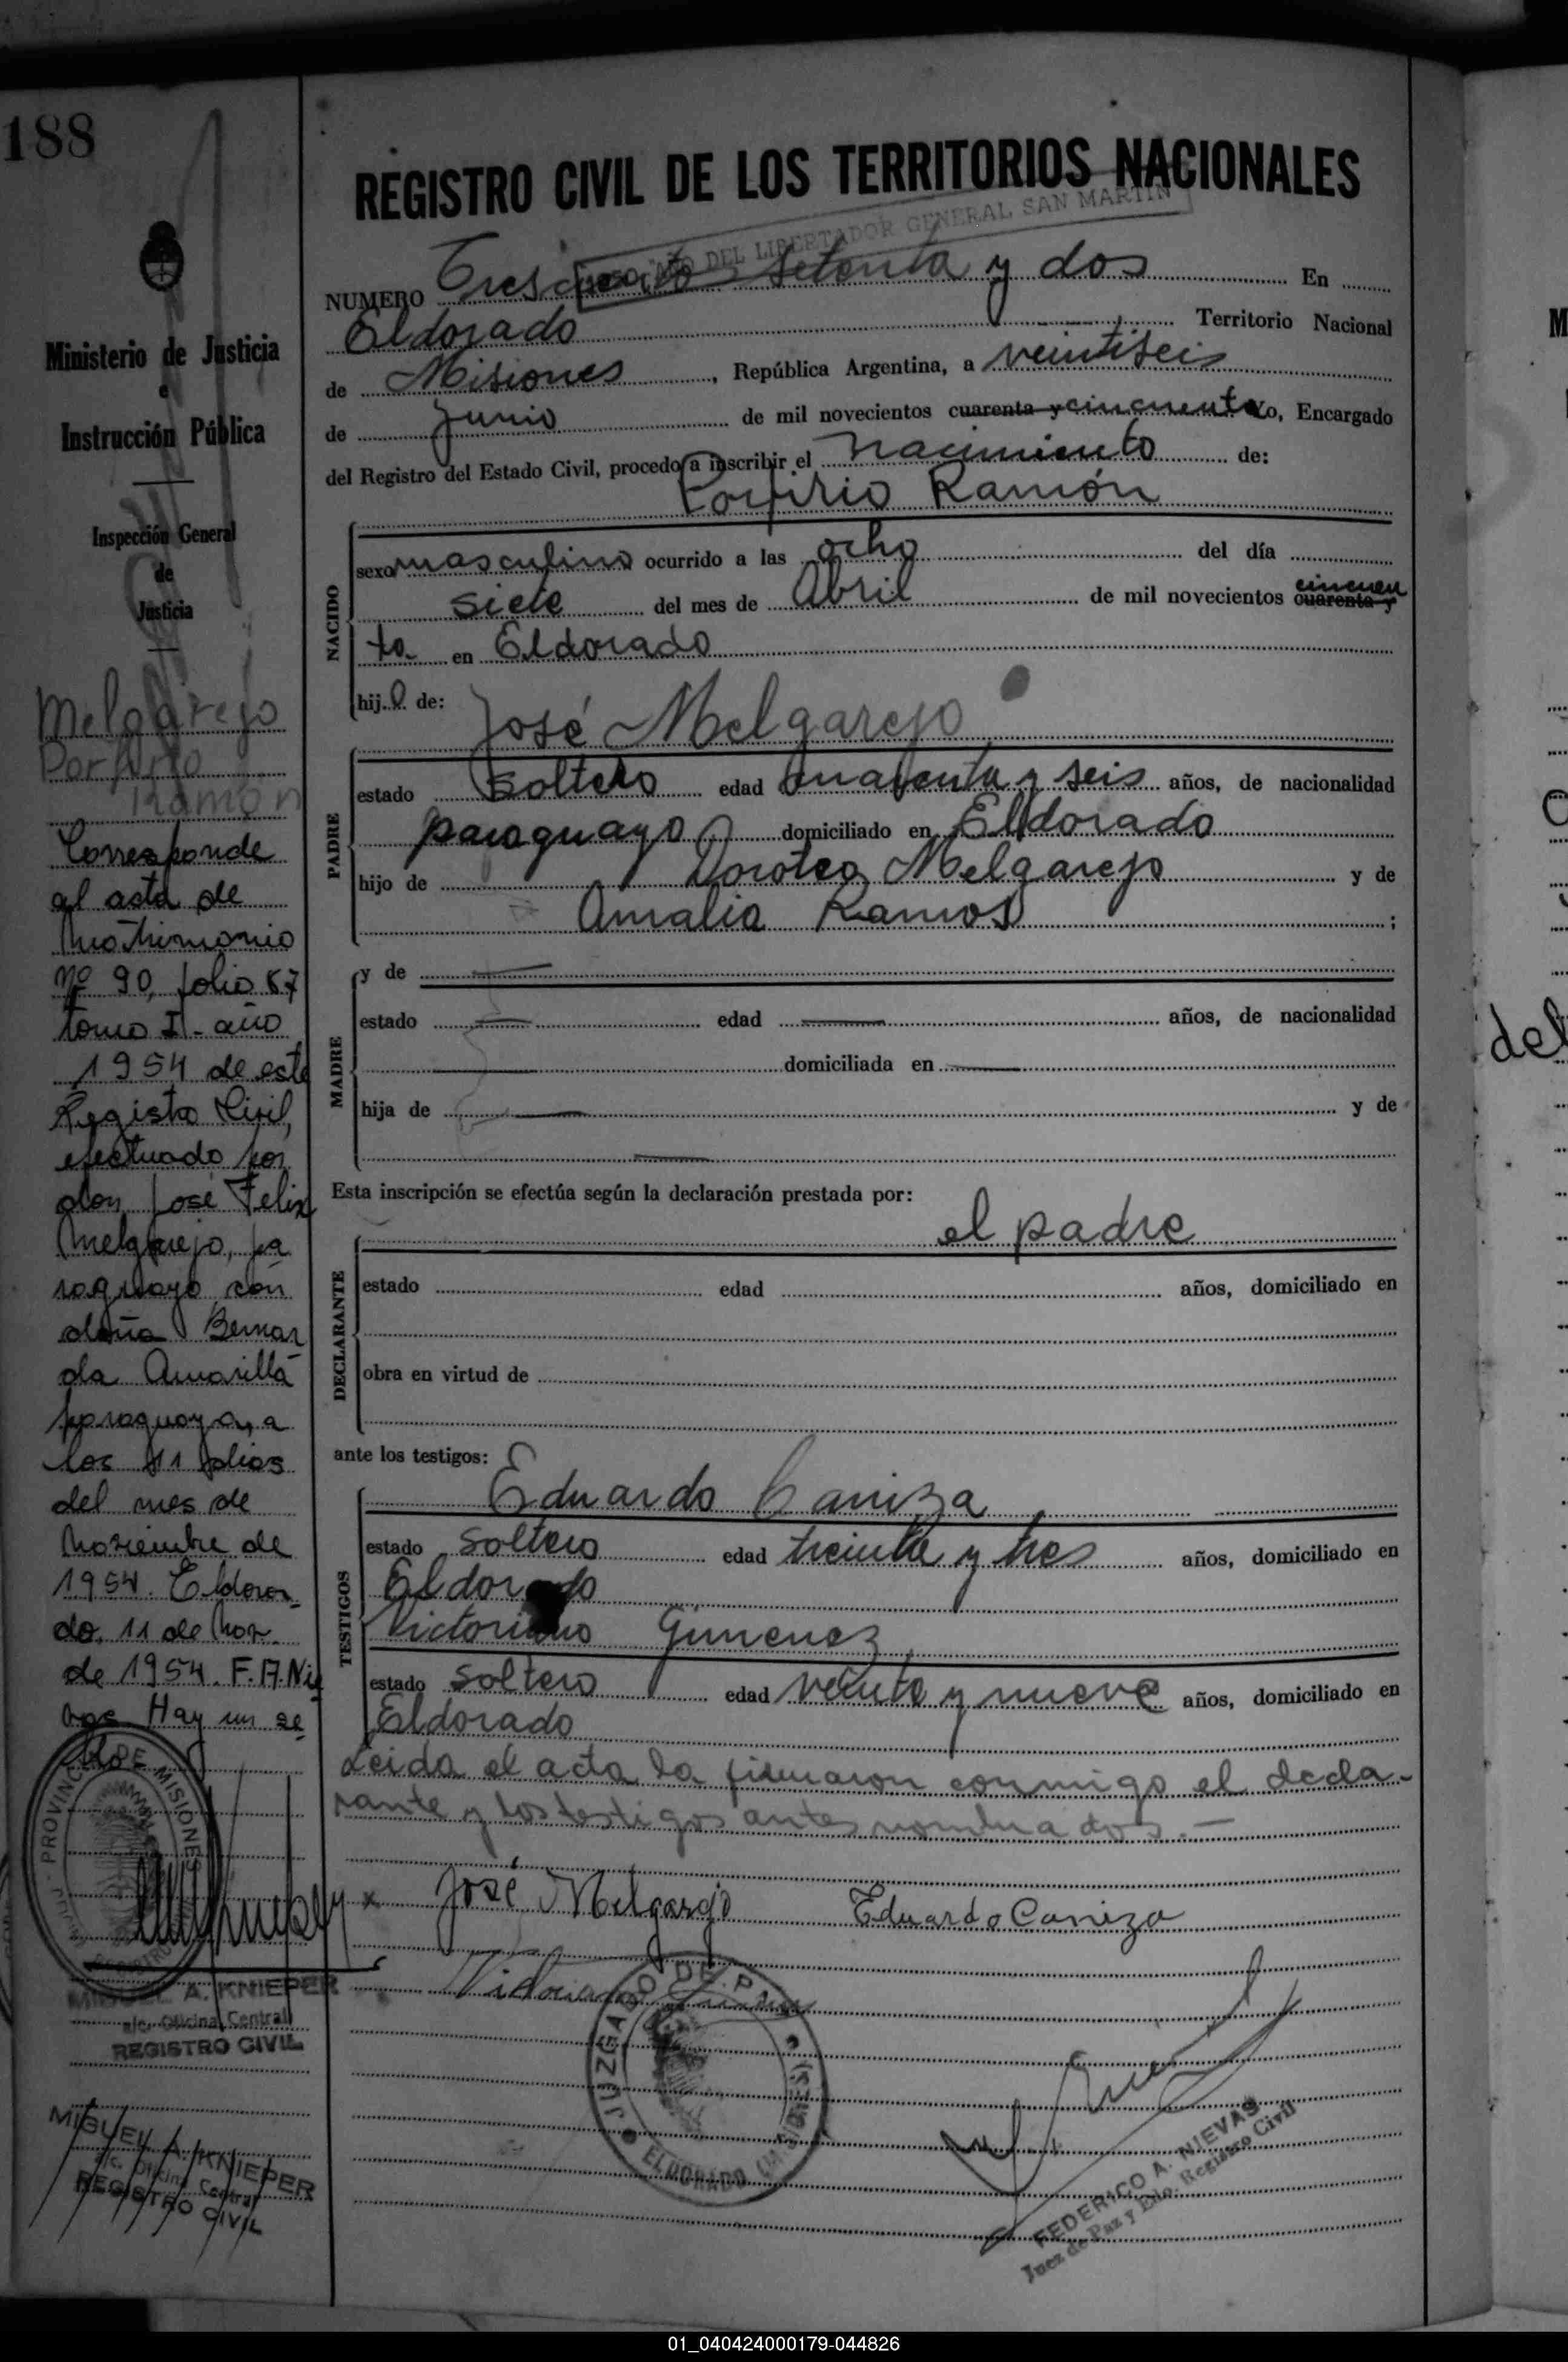 188
Ministerio de Justicia
e
Instrucción Pública
Inspección General
de
Justicia
Melgarejo
Porfirio
Ramón
Corresponde
al acta de
Matrimonio
nº 90, folio 87
tomo I - año
1954 de este
Registro Civil,
efectuado por
don José Felix
Melgarejo, pa
raguayo con
doña Bernar
da Amarilla
paraguaya, a
los 11 dias
del mes de
Noviembre de
1954. Eldora-
do, 11 de Nov.
de 1954. F.A. Nie
vas Hay un se
llo
PROVINCIA DE MISIONES
MIGUEL A. KNIEPER
a/c. Oficina Central
REGISTRO CIVIL
MIGUEL A. KNIEPER
a/c. Oficina Central
REGISTRO CIVIL
REGISTRO CIVIL DE LOS TERRITORIOS NACIONALES
AÑO DEL LIBERTADOR GENERAL SAN MARTIN
NUMERO Trescientos setenta y dos En
Eldorado Territorio Nacional
de Misiones, República Argentina, a veintiseis
de Junio de mil novecientos cuarenta y cincuenta Yo, Encargado
del Registro del Estado Civil, procedo a inscribir el nacimiento de:
Porfirio Ramón
NACIDO
sexo masculino ocurrido a las ocho del día
siete del mes de Abril de mil novecientos cuarenta y cincuen
ta en Eldorado
hijo de:
José Melgarejo
PADRE
estado soltero edad cuarenta y seis años, de nacionalidad
paraguayo domiciliado en Eldorado
hijo de Doroteo Melgarejo y de
Amalia Ramos ;
MADRE
y de
estado edad años, de nacionalidad
domiciliada en
hija de y de
Esta inscripción se efectúa según la declaración prestada por:
el padre
DECLARANTE
estado edad años, domiciliado en
obra en virtud de
ante los testigos:
Eduardo Caniza
TESTIGOS
estado soltero edad treinta y tres años, domiciliado en
Eldorado
Victoriano Gimenez
estado soltero edad veinte y nueve años, domiciliado en
Eldorado
Leida el acta la firmaron conmigo el decla-
rante y los testigos antes nombrados.—
x José Melgarejo Eduardo Caniza
JUZGADO DE PAZ
ELDORADO (MISIONES)
FEDERICO A. NIEVAS
Juez de Paz y Enc. Registro Civil
01_040424000179-044826